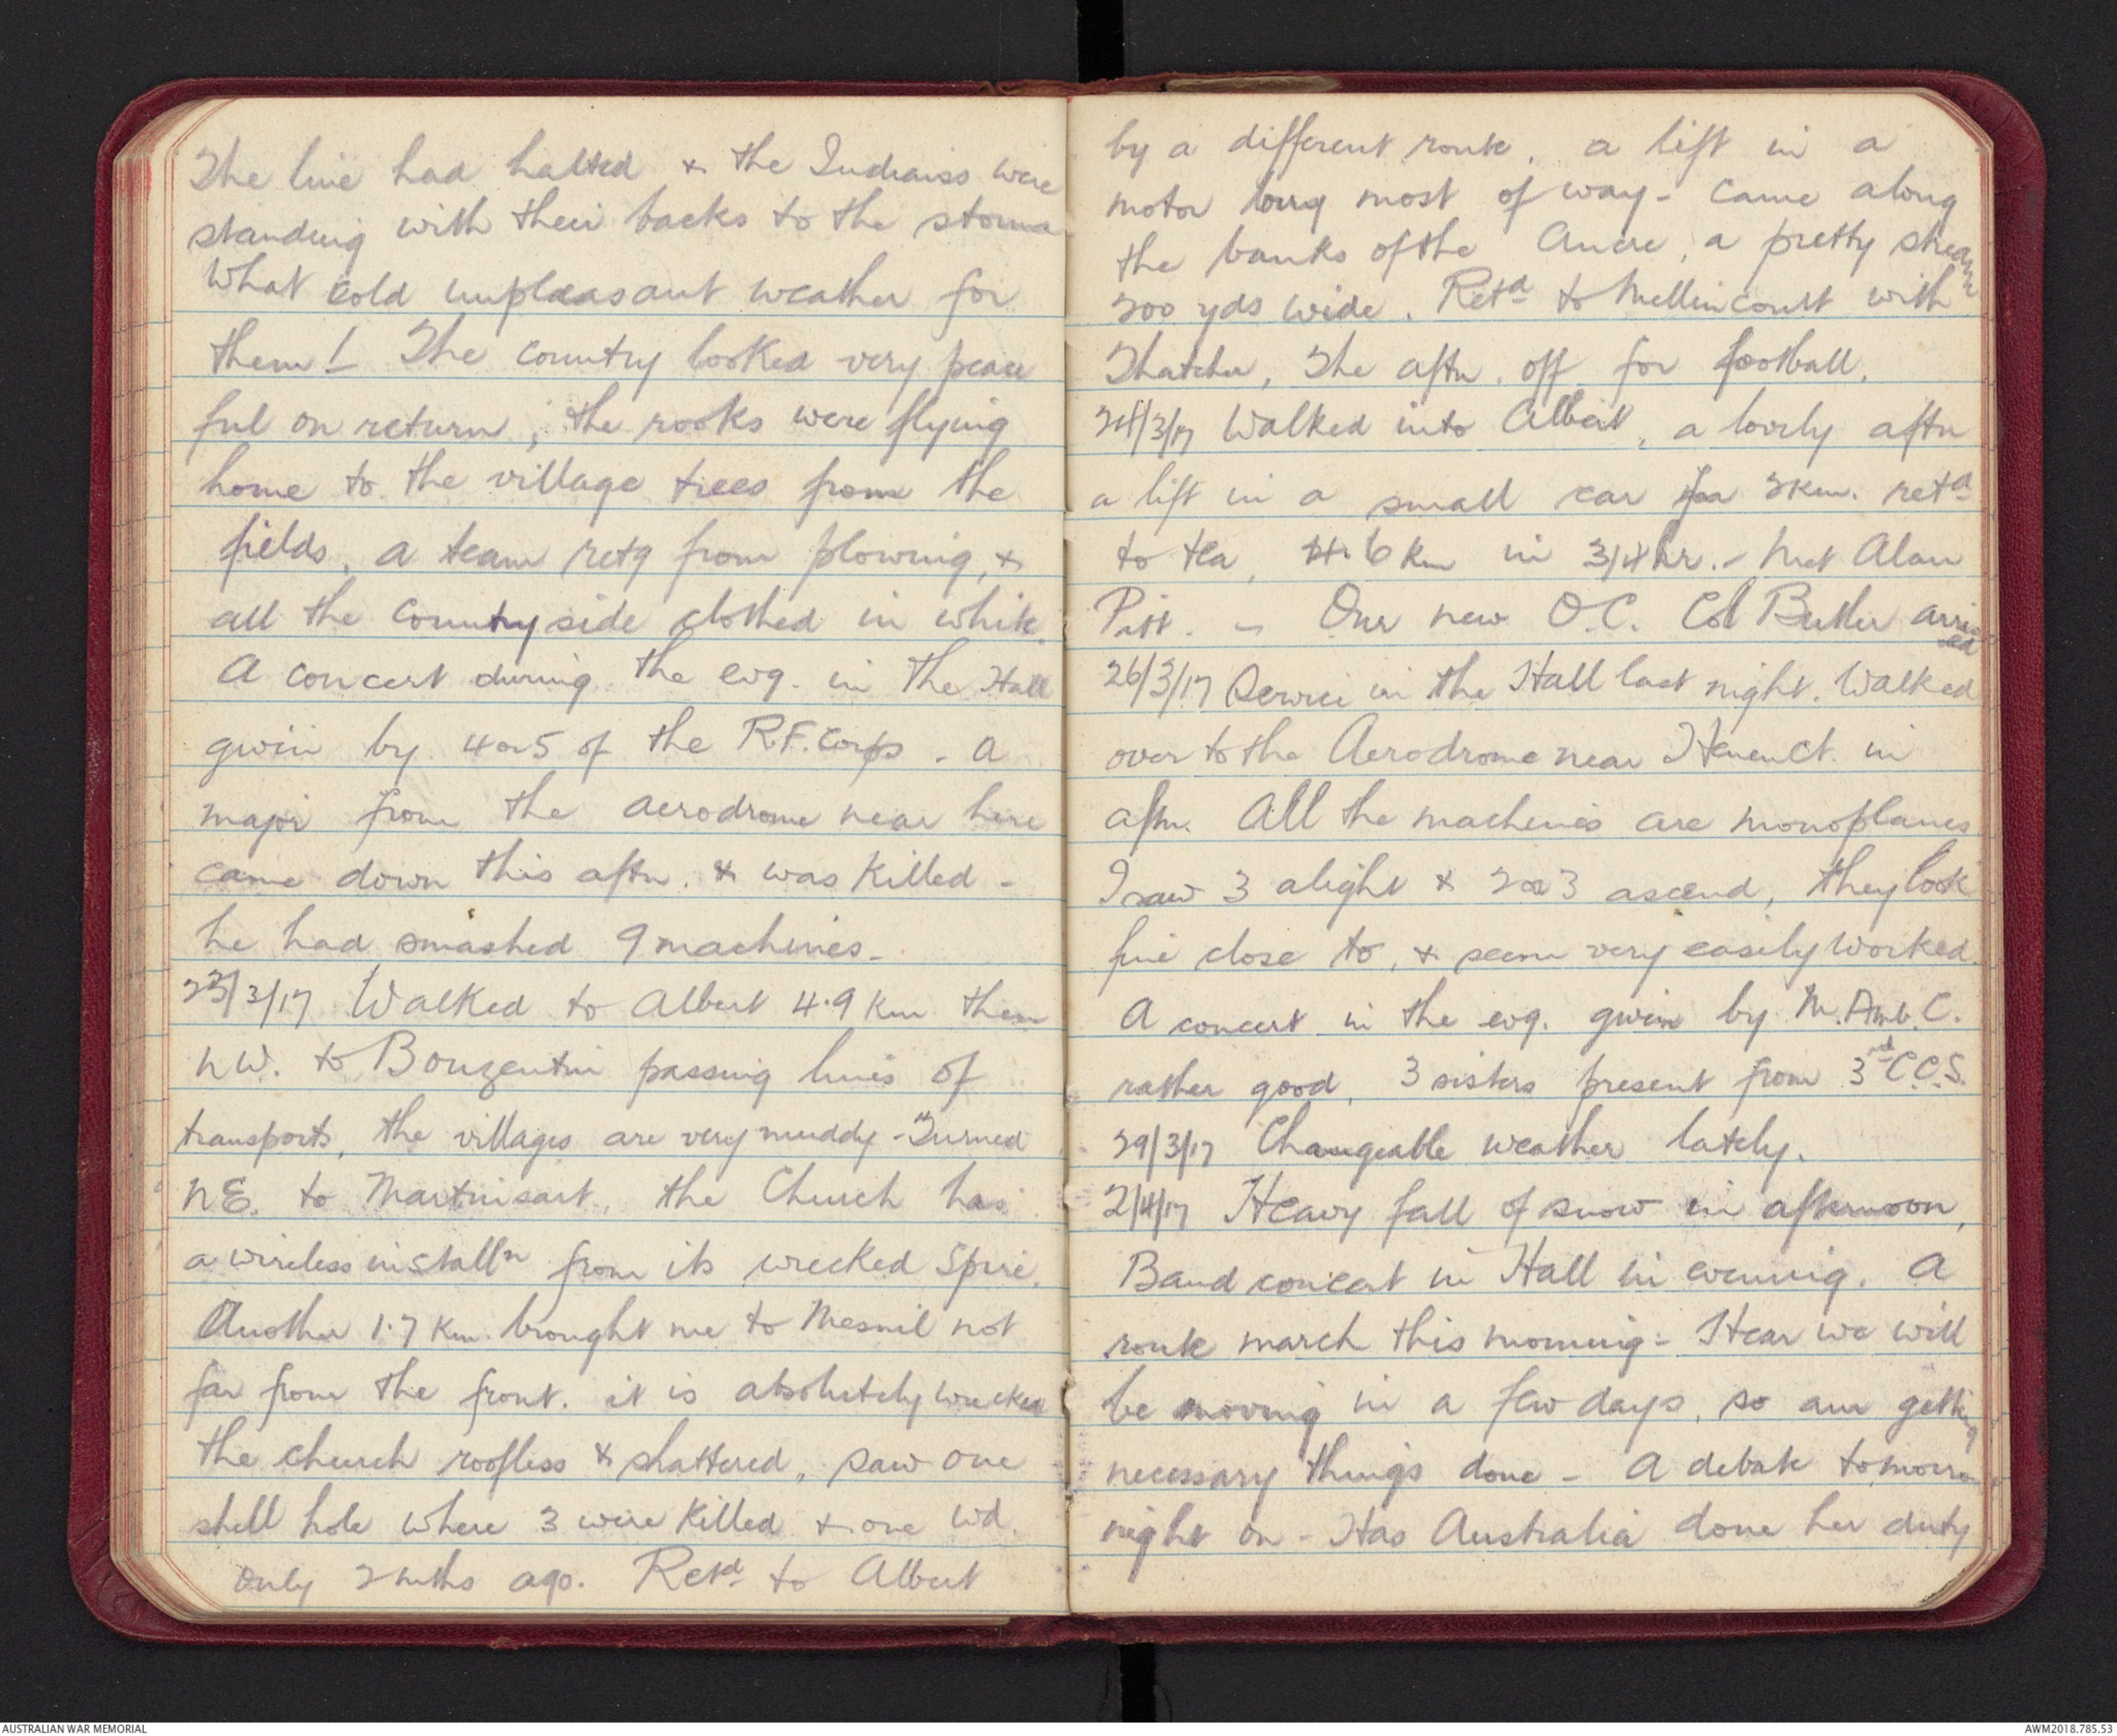 The line had halted & the Indians were
standing with their backs to the storm
What cold unpleasant weather for
them! The country looked very peace
ful on return; the rooks were flying
home to the village trees from the
fields, a team retg from plowing, &
all the countryside clothed in white.
A concert during the evg. in the Hall
given by 4 or 5 of the R.F. Corps. A
major from the aerodrome near here
came down this aftn. & was killed -
he had smashed 9 machines.
23/3/17 Walked to Albert 4.9 km then
NW. to Bouzentin passing lines of
transports, the villages are very muddy - Turned
NE. to Martinsart, the Church has
a wireless installn from its wrecked Spire.
Another 1.7 Km. brought me to Mesnil not
far from the front. it is absolutely wrecked
the church roofless & shattered, saw one
shell hole where 3 were killed & one wd.
only 2 mths ago. Retd to Albert
by a different route, a lift in a
motor lorry most of way - came along
the banks of the Ancre, a pretty stream
200 yds wide. Retd to Mellincourt with
Thatcher, The aftn. off for football.
24/3/17 Walked into Albert, a lovely aftn
a lift in a small car for 2km. retd
to tea, 4.6 km in 3/4 hr. - Met Alan
Pitt. - Our new O.C. Col Butler arrived
26/3/17 Service in the Hall last night. Walked
over to the Aerodrome near Henenct. in
aftn. All the machines are monoplanes
I saw 3 alight & 2 or 3 ascend, they look
fine close to, & seem very easily worked.
A concert in the evg. given by M. Amb. C.
rather good, 3 sisters present from 3rd C.C.S.
29/3/17 Changeable weather lately.
2/4/17 Heavy fall of snow in afternoon,
Band concert in Hall in evening. A
route march this morning - Hear we will
be moving in a few days, so am getting
necessary things done - A debate tomorrow
night on - Has Australia done her duty
AUSTRALIAN WAR MEMORIAL
AWM2018.785.53